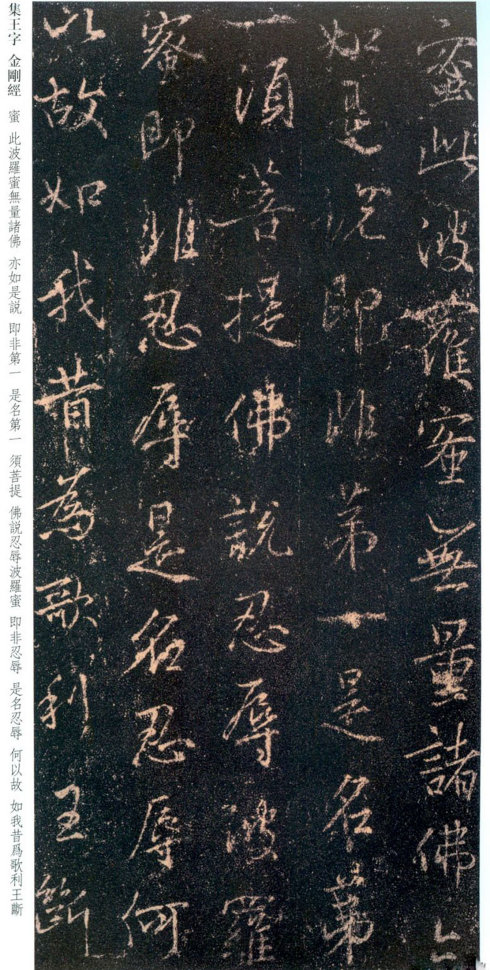 蜜此波羅蜜無量諸佛亦
如是說即非第一是名第
一須菩提佛說忍辱波羅
蜜即非忍辱是名忍辱何
以故如我昔為歌利王斷
集王字 金剛經 蜜 此波羅蜜無量諸佛 亦如是説 即非第一 是名第一 須菩提 佛説忍辱波羅蜜 即非忍辱 是名忍辱 何以故 如我昔爲歌利王斷